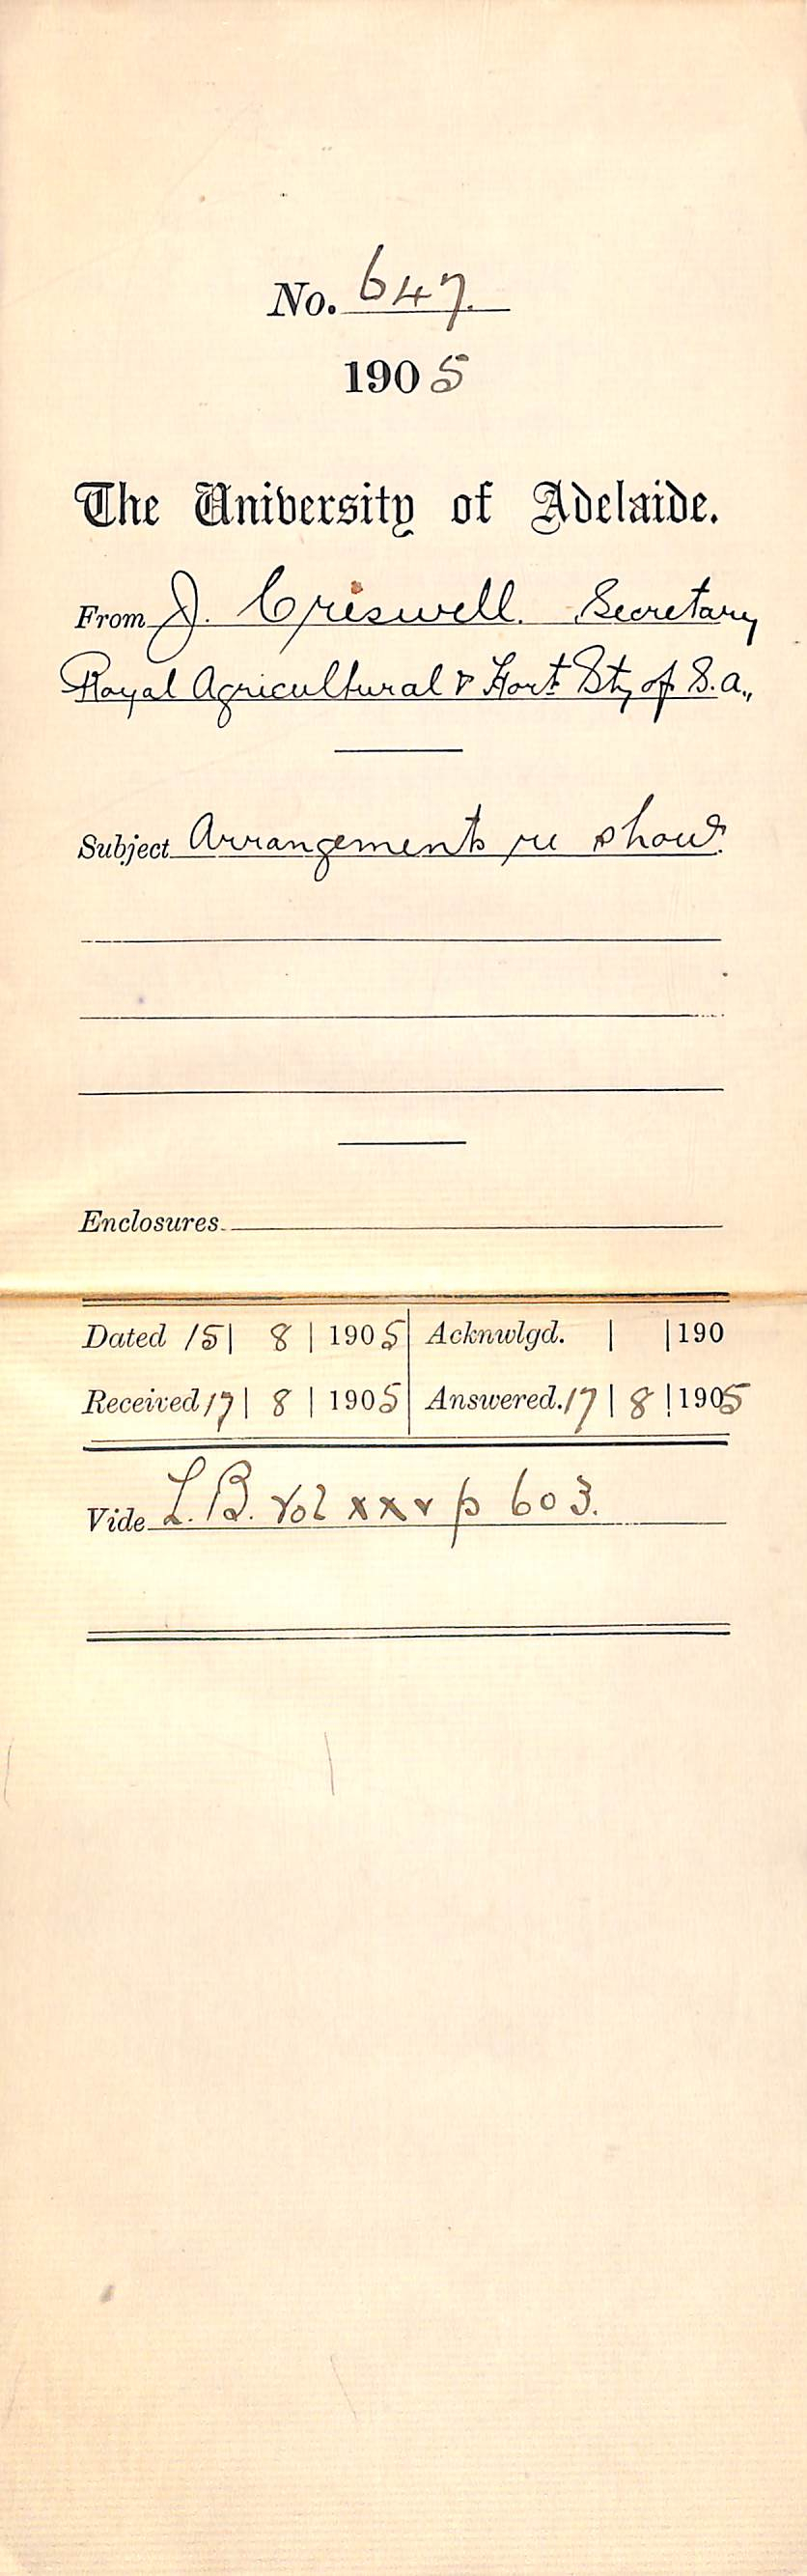 No. 647.
1905
The University of Adelaide.
From J. Criswell. Secretary
Royal Agricultural & Hort Sty of S.A.,
Subject Arrangements re show.
Enclosures
Dated 15| 8 | 1905 Acknwlgd. | |190
Received 17| 8 | 1905 Answered. 17 | 8 |1905
Vide L.B. Vol xxv p 603.